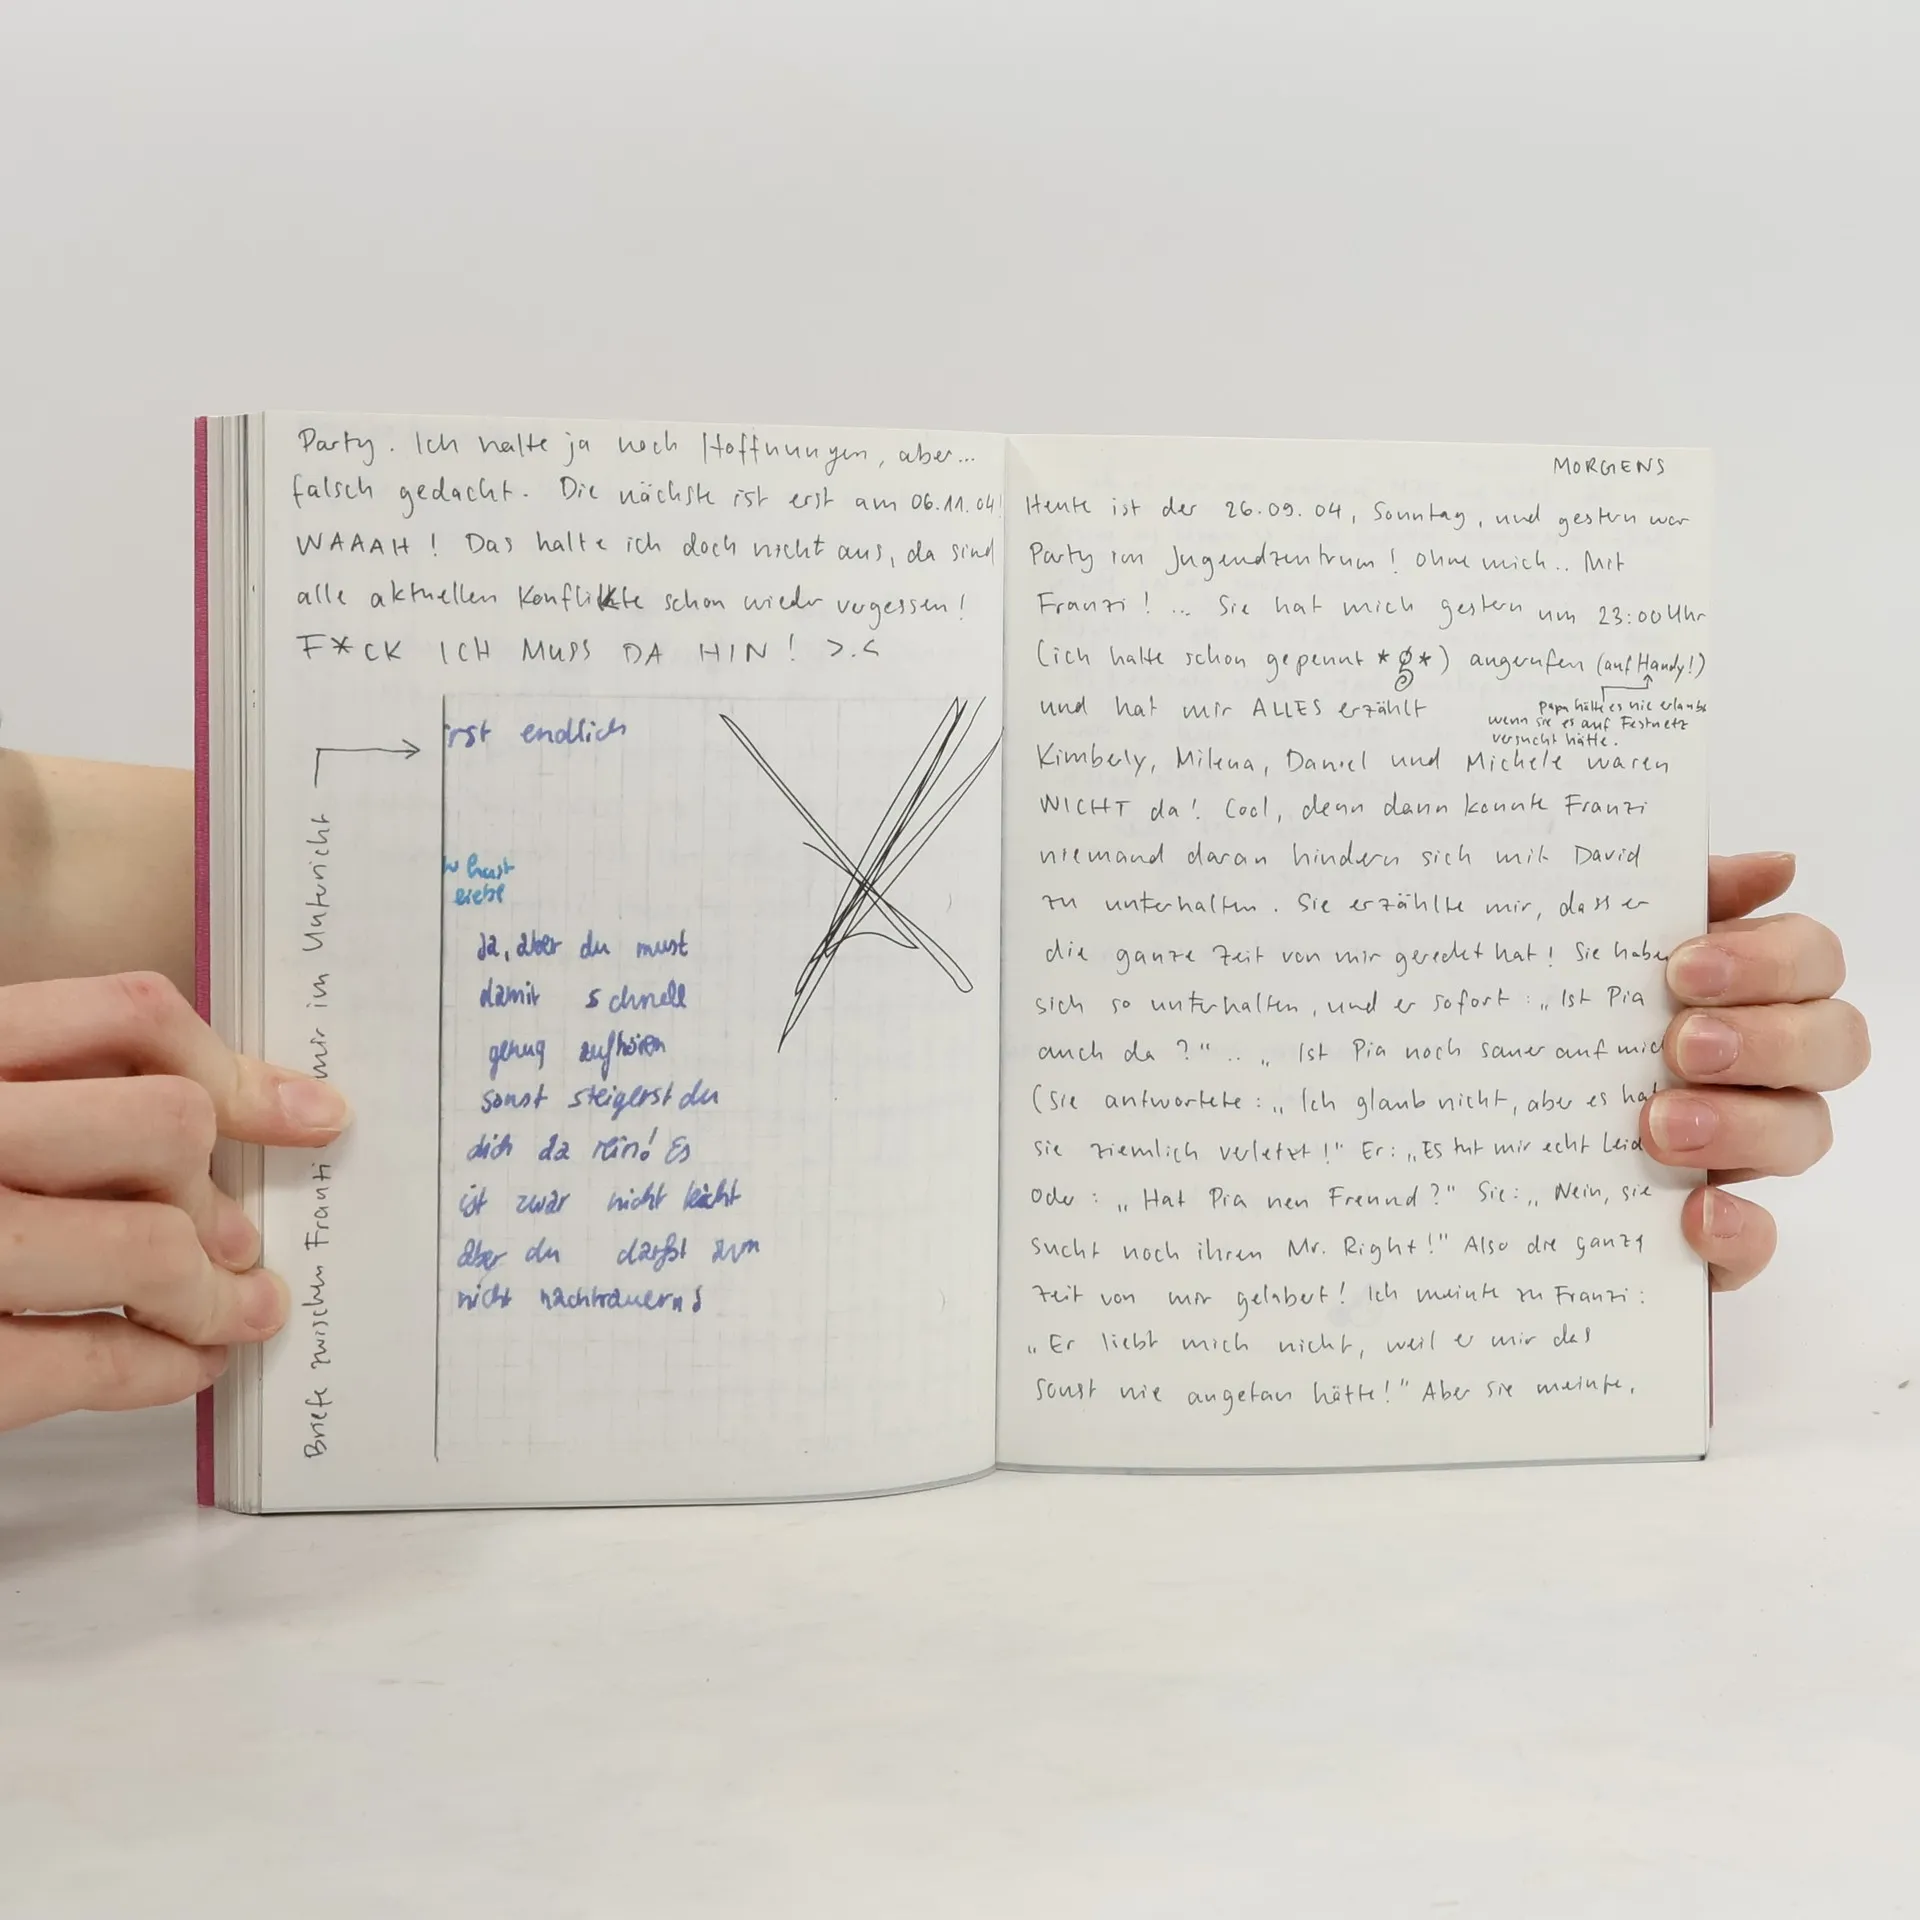 Party. Ich hatte ja noch Hoffnungen, aber...
falsch gedacht. Die nächste ist erst am 06.11.04!
WAAAH! Das halte ich doch nicht aus, da sind
alle aktuellen Konflikte schon wieder vergessen!
F*CK ICH MUSS DA HIN! >.<
Briefe zwischen Franzi mir im Unterricht
endlich
hast
Ja, aber du must
damit schnell
genug aufhören
sonst steigerst du
dich da rein! Es
ist zwar nicht leicht
aber du darfst
nicht nachtrauern
MORGENS
Heute ist der 26.09.04, Sonntag, und gestern war
Party im Jugendzentrum! Ohne mich.. Mit
Franzi! ... Sie hat mich gestern um 23:00 Uhr
(ich hatte schon gepennt *g*) angerufen (auf Handy!)
Papa hätte es nie erlaubt
wenn sie es auf Festnetz
versucht hätte.
und hat mir ALLES erzählt
Kimberly, Milena, Daniel und Michele waren
NICHT da! Cool, denn dann konnte Franzi
niemand daran hindern sich mit David
zu unterhalten. Sie erzählte mir, dass er
die ganze Zeit von mir geredet hat! Sie habe
sich so unterhalten, und er sofort: „Ist Pia
auch da?" .. „Ist Pia noch sauer auf mich
(sie antwortete: „Ich glaub nicht, aber es hat
sie ziemlich verletzt!" Er: „Es tut mir echt Leid
Oder: „Hat Pia nen Freund?" Sie: „Nein, sie
sucht noch ihren Mr. Right!" Also die ganze
Zeit von mir gelabert! Ich meinte zu Franzi:
„Er liebt mich nicht, weil er mir das
sonst nie angetan hätte!" Aber sie meinte,